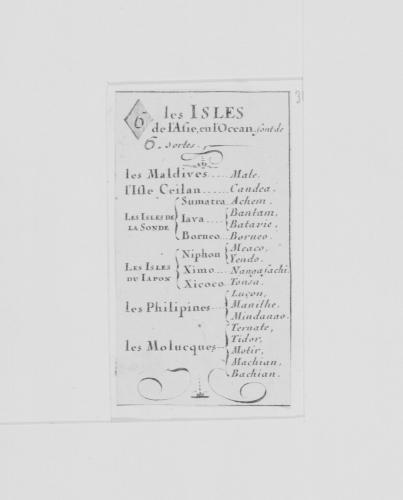 6 les ISLES
de l'Asie, en l'Ocean, sont de
6. sortes.
les Maldives ..... Male.
l'Isle Ceilan ...... Candea.
LES ISLES DE LA SONDE
Sumatra. Achem.
Iava ..... Bantam,
Batavie.
Borneo ... Borneo.
LES ISLES DU IAPON
Niphon Meaco,
Yendo.
Ximo .... Nangasachi.
Xicoco. Tonsa.
les Philipines ...... Luçon,
Manilhe.
Mindanao.
les Molucques ... Ternate,
Tidor,
Motir,
Machian,
Bachian.